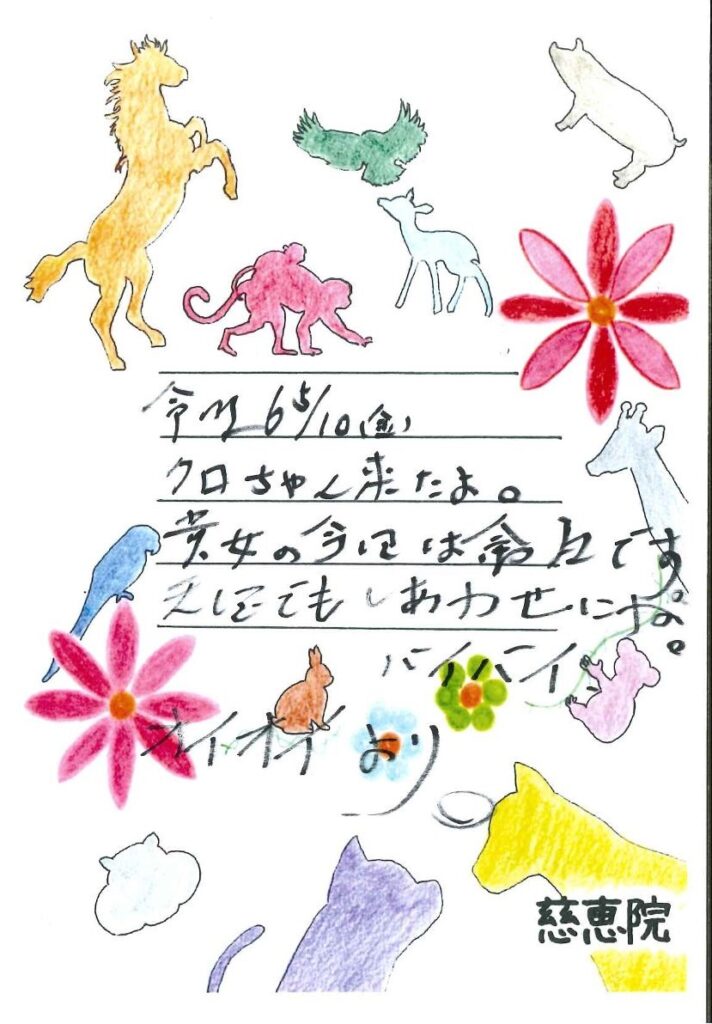 令和6 5/10(金)
クロちゃん来たよ。
貴女の今日は命日です。
天国でもしあわせにな。
バイバイ
オイオイより
慈恵院